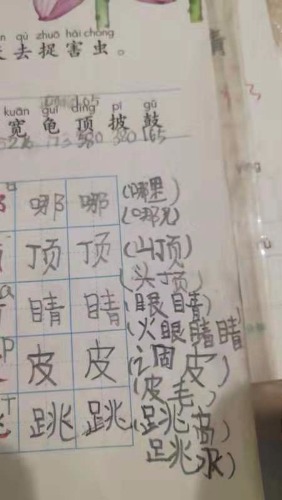 qù zhuō hài chóng
去捉害虫。
kuān guī dǐng pī gǔ
宽 龟 顶 披 鼓
哪 哪 (哪里)
(哪儿)
顶 顶 (山顶)
(头顶)
睛 睛 (眼睛)
(火眼睛睛)
皮 皮
(皮毛)
跳 跳 (跳高)
跳水)